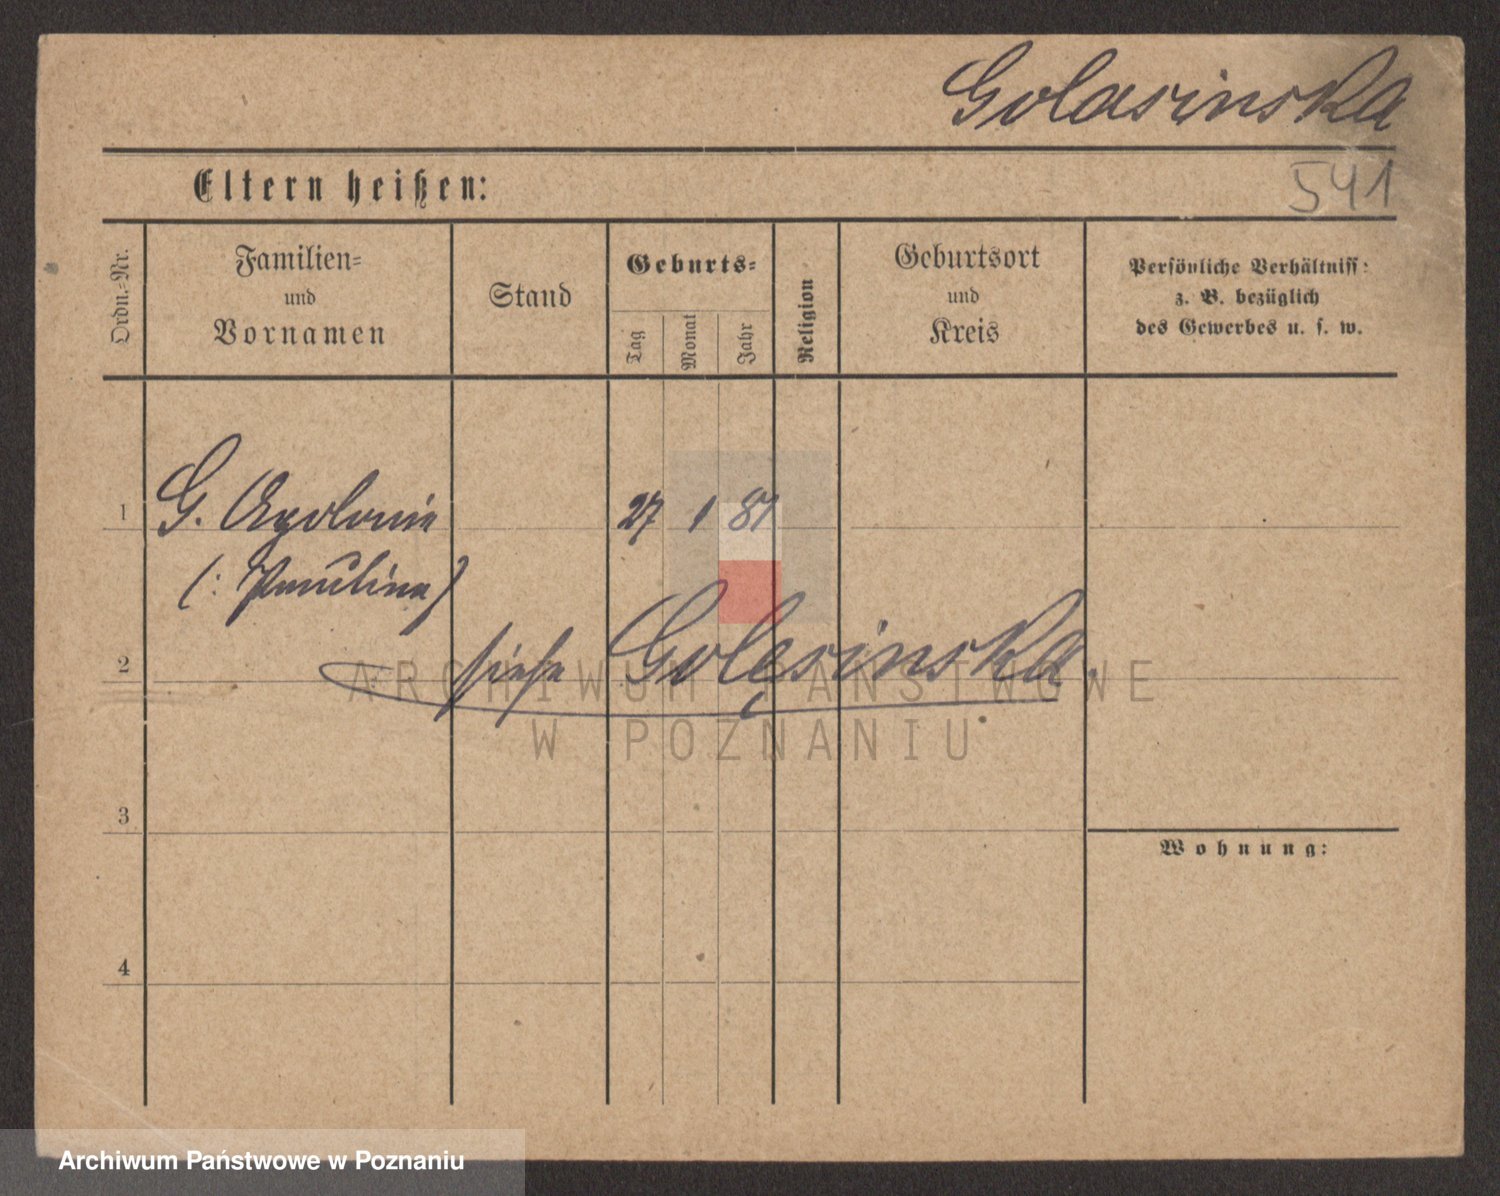 Golasinska
Eltern heißen:
541
Ordn.-Nr.
Familien-
und
Vornamen
Stand
Geburts-
Tag
Monat
Jahr
Religion
Geburtsort
und
Kreis
Persönliche Verhältniss:
z. B. bezüglich
des Gewerbes u. s. w.
1 G. Apolonia 27 1 81
(: Paulina)
2 siehe Golęsinska.
ARCHIWUM PAŃSTWOWE
W POZNANIU
3
Wohnung:
4
Archiwum Państwowe w Poznaniu